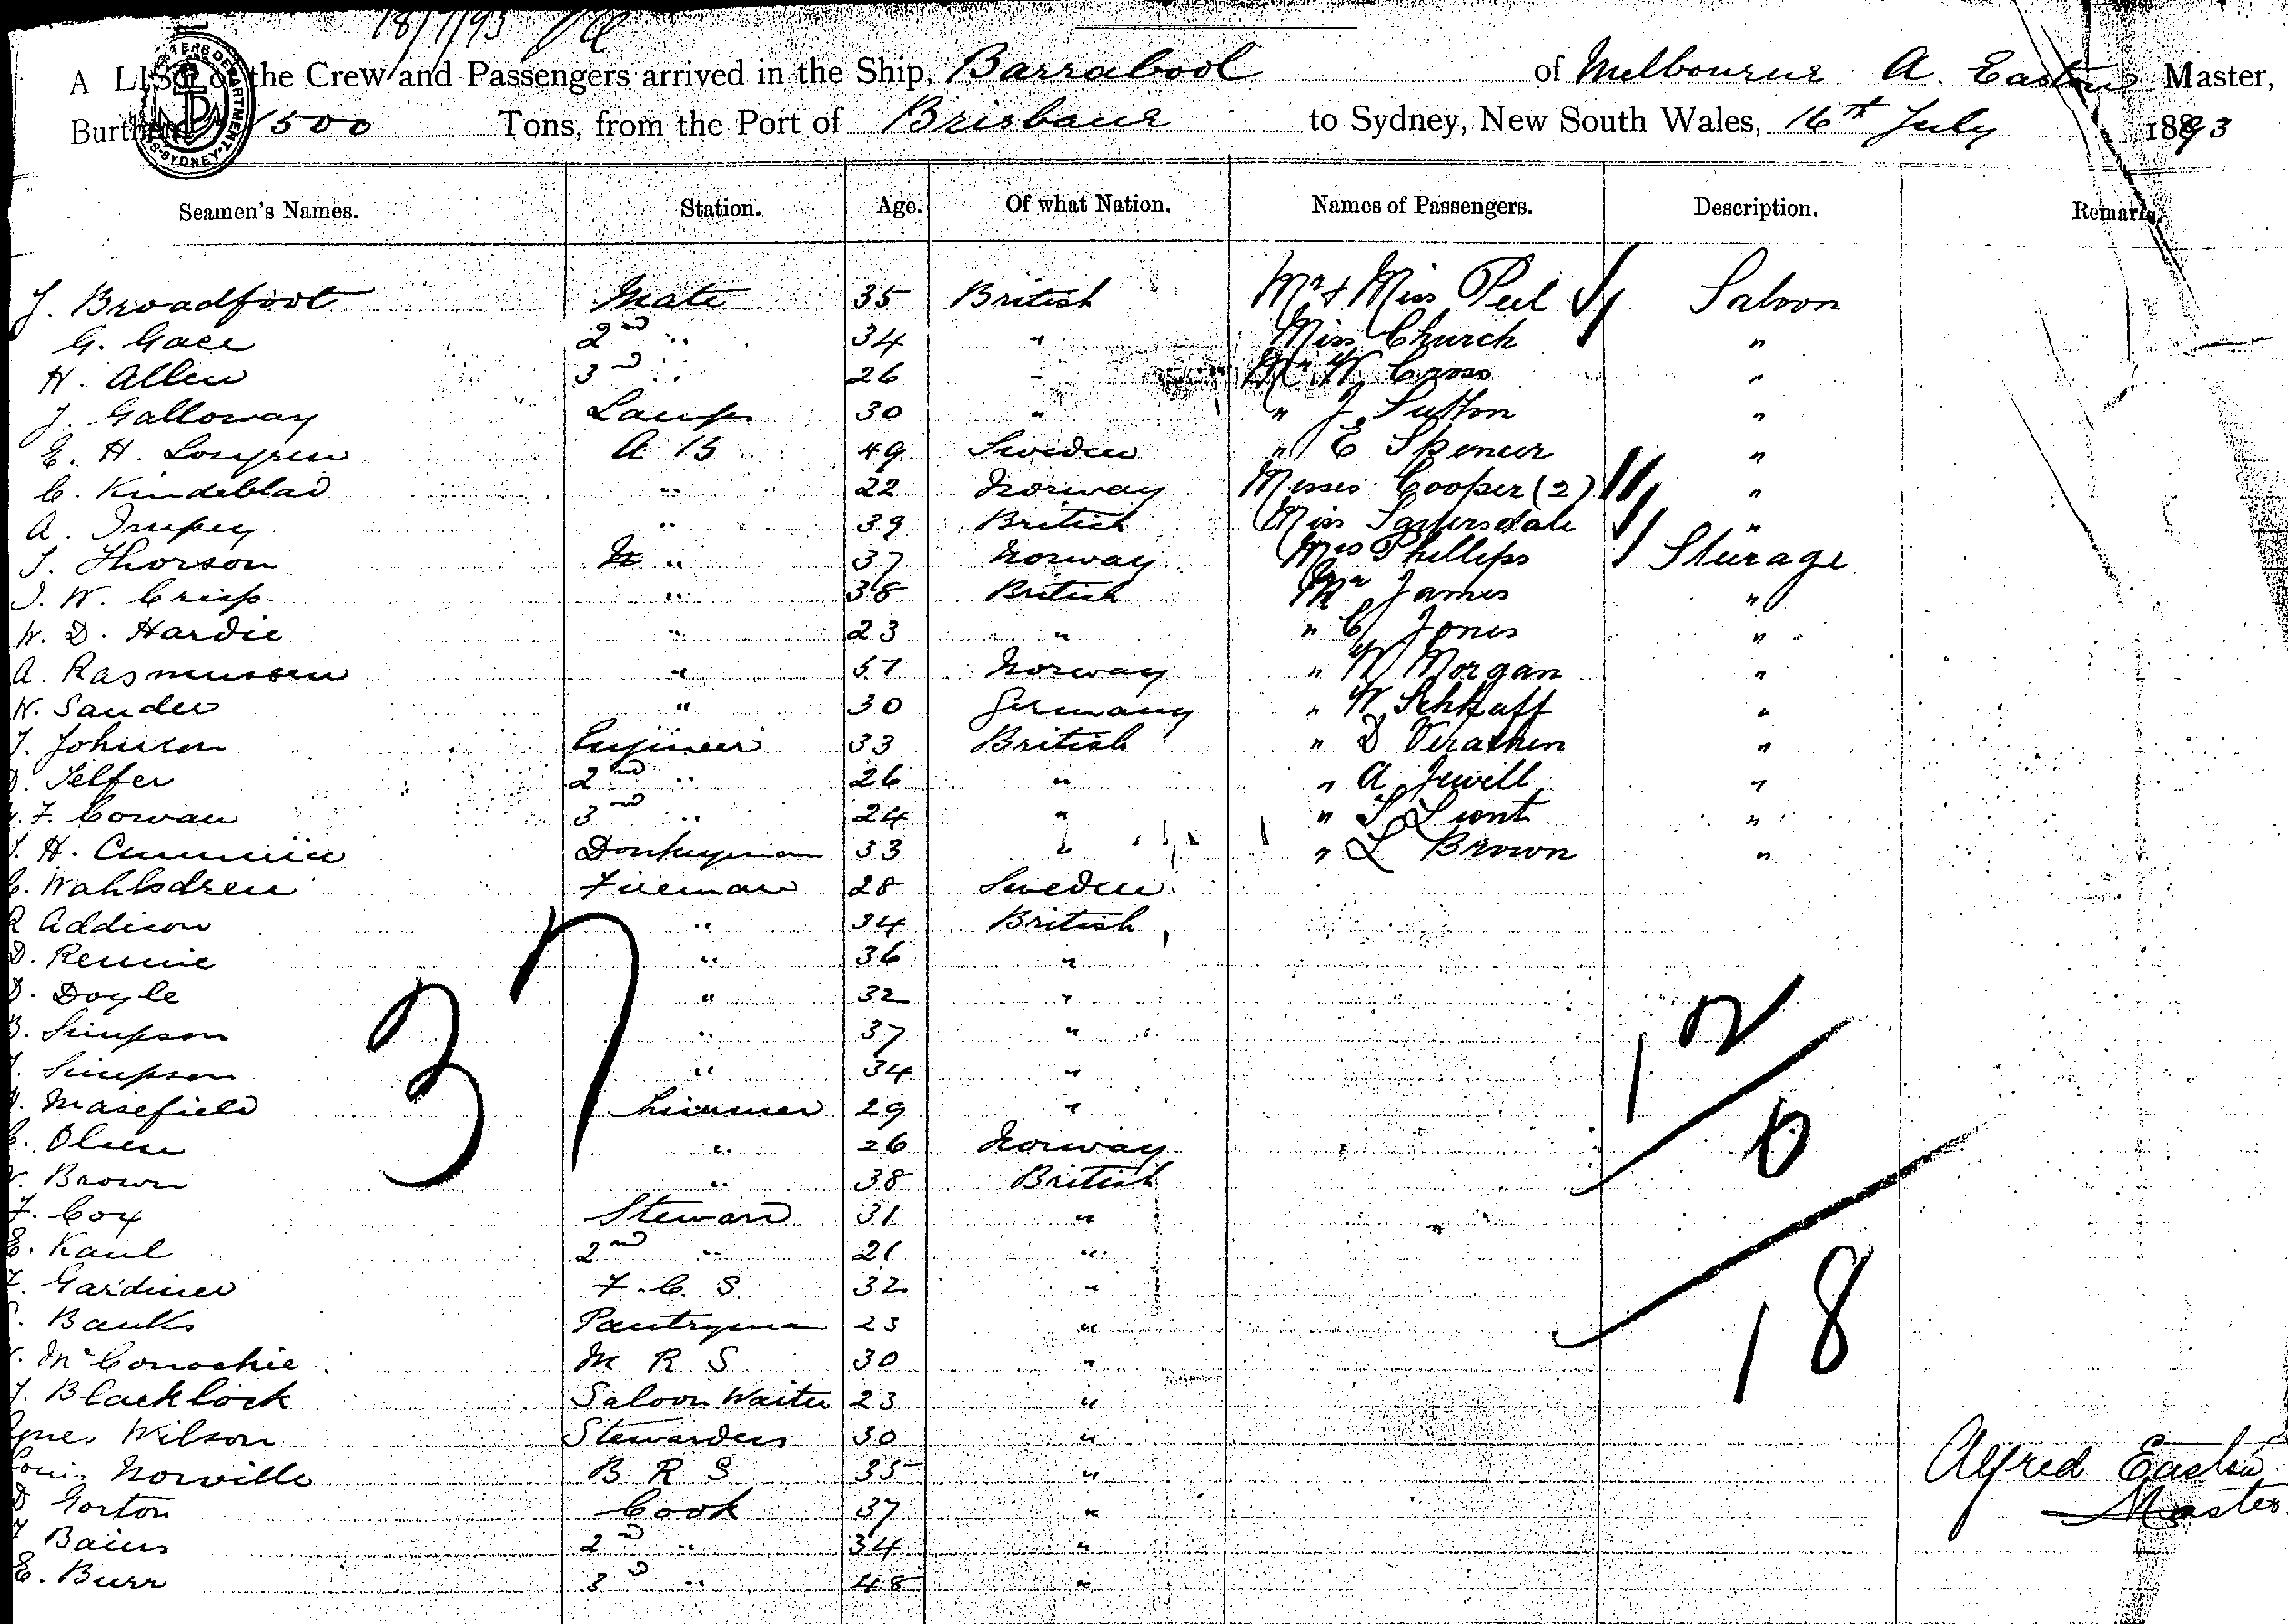 18/7/93
A LIST of the Crew and Passengers arrived in the Ship, Barrabool of Melbourne A. Easton Master,
Burthen 1500 Tons, from the Port of Brisbane to Sydney, New South Wales, 16th July 1893
Seamen's Names. Station. Age. Of what Nation. Names of Passengers. Description. Remarks
J. Broadfoot Mate 35 British Mr & Miss Peel Saloon
G. Gale 2nd " 34 " Miss Church "
H. Allen 3rd " 26 " Mr W Cross "
J. Galloway Lamps 30 " " J Sutton "
E. H. Longren A B 49 Sweden " E Spencer "
C. Kindeblad " 22 Norway Messrs Cooper (2) "
A. Impey " 39 British Miss "
T. Thorson " 37 Norway Phillips Steerage
J. W. Crisp " 38 British Mr James "
W. D. Hardie " 23 " " C Jones "
A. Rasmussen " 57 Norway " W Morgan "
W. Sander " 30 Germany " W "
J. Johnson Engineer 33 British " D "
Telfer 2nd " 26 " " A Jewill "
F. Cowan 3rd " 24 " " T Lunt "
H. Cummins Donkeyman 33 " " L Brown "
C. Wahlsdren Fireman 28 Sweden
R Addison " 34 British
D. Rennie " 36 "
D. Doyle " 32 "
B. Simpson " 37 "
J. Simpson " 34 "
Masefield Trimmer 29 "
C. Olsen " 26 Norway
Brown " 38 British
F. Cox Steward 31 "
E. Kaul 2nd " 21 "
F. Gardiner F. C. S 32 "
Banks Pantryman 23 "
McConochie M R S 30 "
J. Blacklock Saloon Waiter 23 "
Agnes Wilson Stewardess 30 "
Norville B R S 35 "
D Gorton Cook 37 "
Bains 2nd " 34 "
E. Burr 3rd " 48 "
37
12
6
18
Alfred Easton
Master